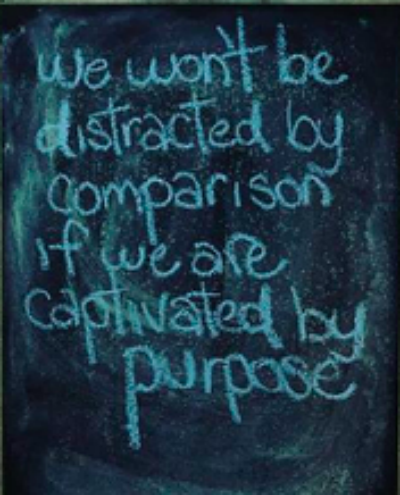 we won't be
distracted by
comparison
if we are
captivated by
purpose